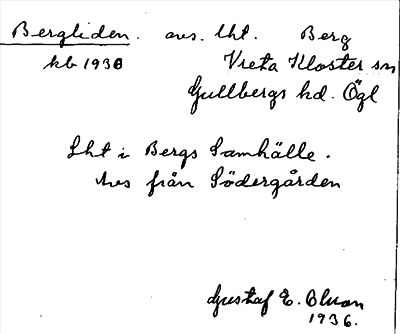 Bergliden. avs. lht. Berg
kb 1936 Vreta Kloster sn
Gullbergs hd. Ögl
Lht i Bergs Samhälle.
Avs från Södergården
Gustaf E. Bluan
1936.